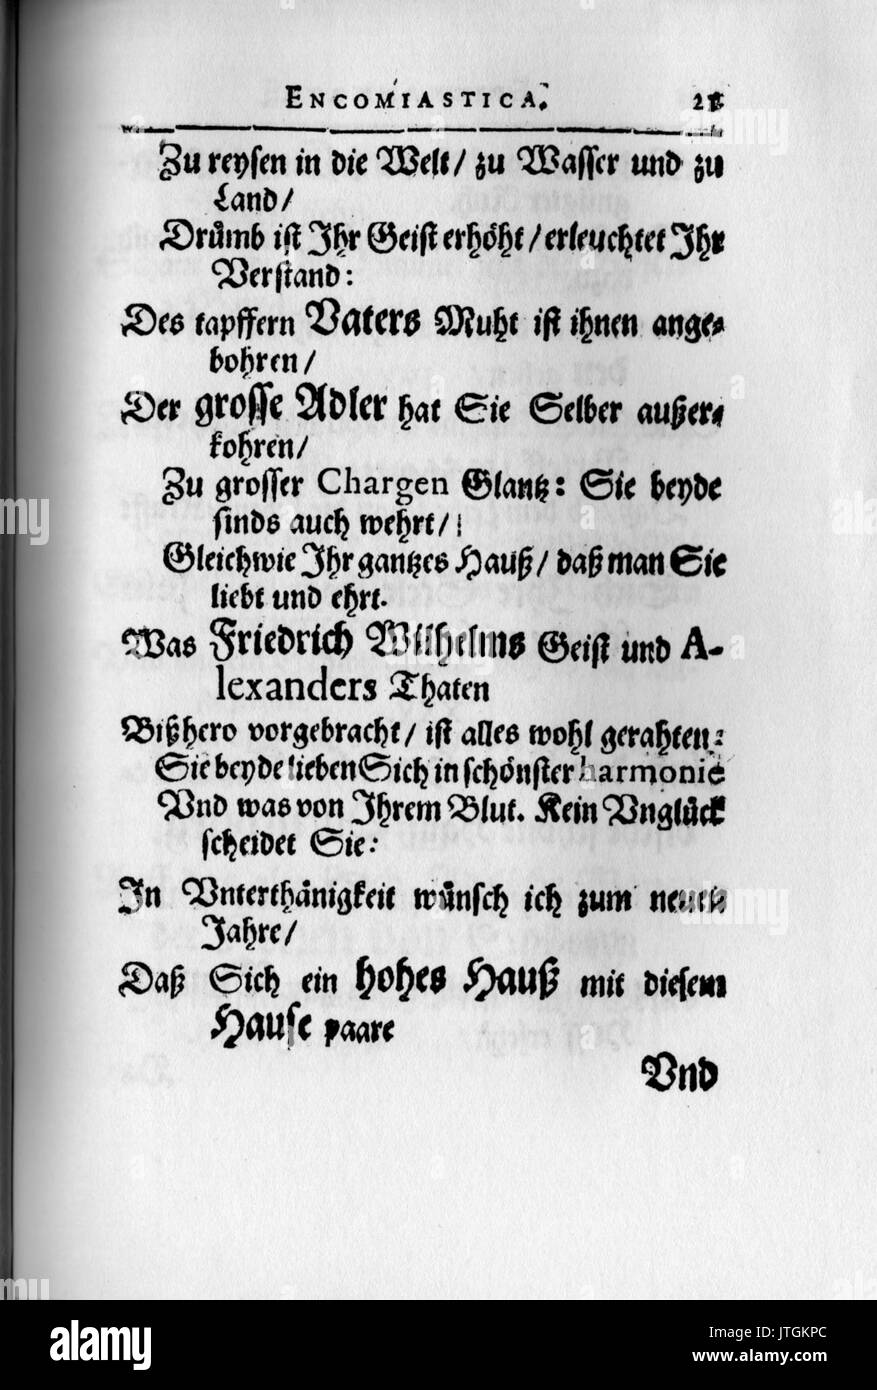 ENCOMIASTICA.
Zu reysen in die Welt/ zu Wasser und zu
Land/
Drůmb ist Ihr Geist erhöht/ erleuchtet Ihr
Verstand:
Des tapffern Vaters Muht ist ihnen ange-
bohren/
Der grosse Adler hat Sie Selber außer-
kohren/
Zu grosser Chargen Glantz: Sie beyde
sinds auch wehrt/
Gleichwie Ihr gantzes Hauß/ daß man Sie
liebt und ehrt.
Was Friedrich Wilhelms Geist und A-
lexanders Thaten
Bißhero vorgebracht/ ist alles wohl gerahten:
Sie beyde lieben Sich in schönster harmonie
Vnd was von Ihrem Blut. Kein Vnglůck
scheidet Sie:
In Vnterthänigkeit wůnsch ich zum neuen
Jahre/
Daß Sich ein hohes Hauß mit diesem
Hause paare
Vnd
alamy
Image ID: JTGKPC
www.alamy.com